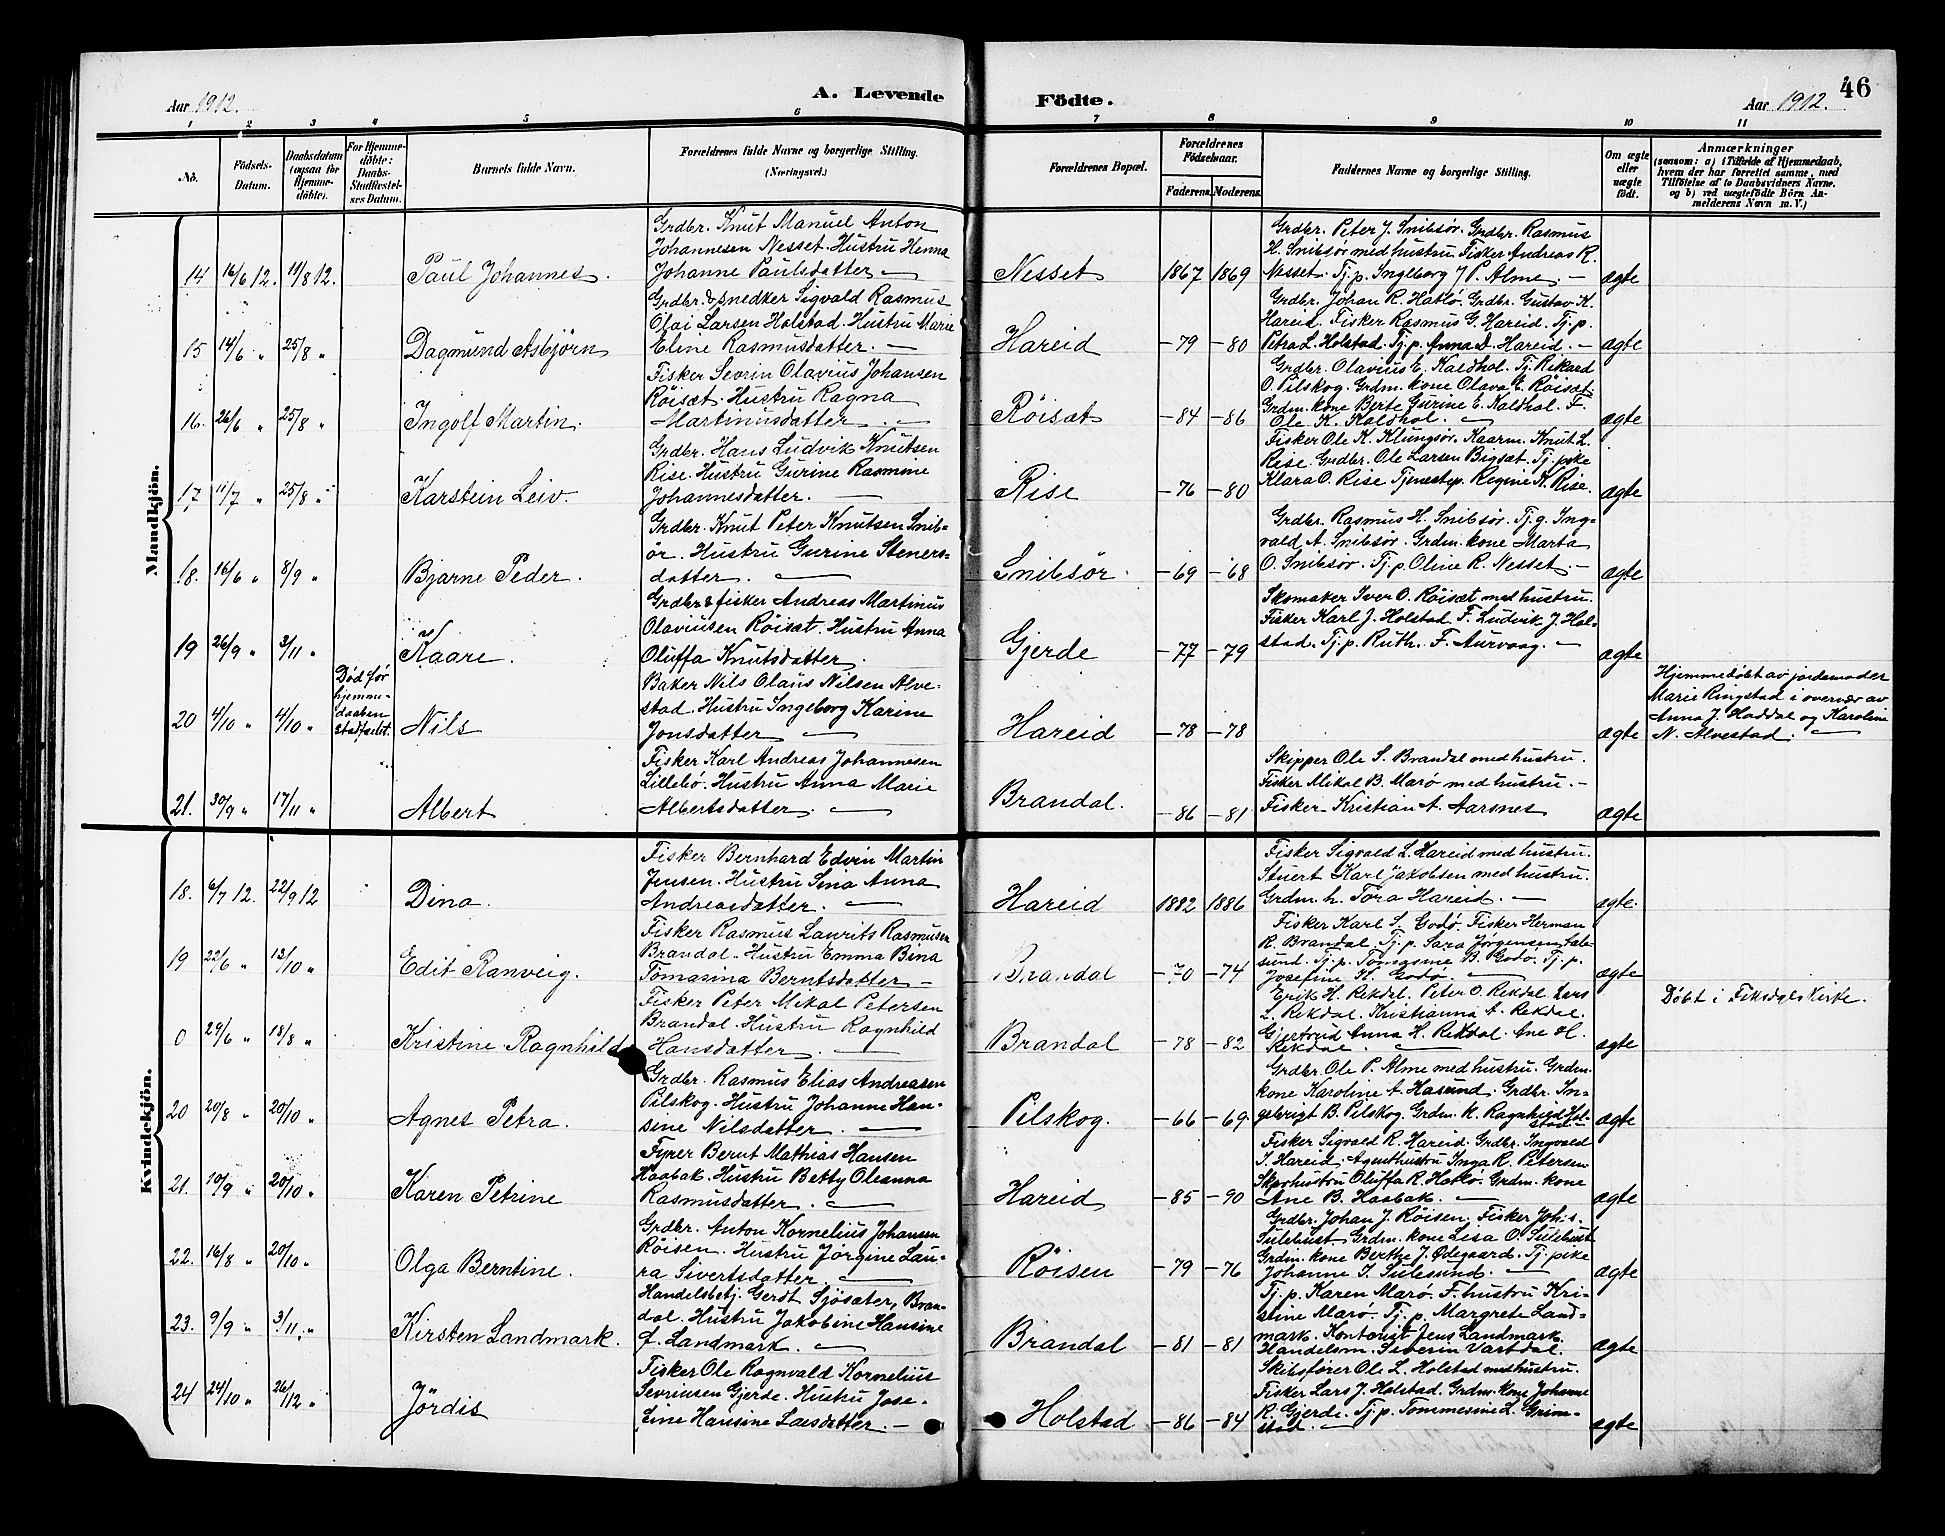 Aar 1912.
A. Levende
Födte.
Aar 1912.
46
1 2 3 4 5 6 7 8 9 10 11
No.
Födsels-
Datum.
Daabsdatum
(ogsaa for
Hjemme-
döbte).
For Hjemme-
döbte:
Daabs-
Stadfæstel-
ses Datum.
Barnets fulde Navn.
Forældrenes fulde Navne og borgerlige Stilling.
(Næringsvei.)
Forældrenes Bopæl.
Forældrenes
Födselsaar.
Faderens. Moderens.
Faddernes Navne og borgerlige Stilling.
Om ægte
eller
uægte
födt.
Anmærkninger
(saasom: a) i Tilfælde af Hjemmedaab,
hvem der har forrettet samme, med
Tilföielse af to Daabsvidners Navne,
og b) ved uægtefödte Börn An-
melderens Navn m. V.)
Mandkjön.
14 16/6 12. 11/8 12. Paul Johannes.
Grdbr. Knut Manuel Anton
Johannesen Nesset. Hustru Henna
Johanne Paulsdatter
Nesset 1867 1869
Grdbr. Peter J. Snibsør. Grdbr. Rasmus
H. Snibsør med hustru. Fisker Andreas R.
Nesset. Tj. p. Ingeborg J P. Alme. —
ægte
15 14/6 " 25/8 " Dagmund Asbjörn
Grdbr. & snedker Sigvald Rasmus
Olai Larsen Holstad. Hustru Marie
Eline Rasmusdatter. —
Hareid — 79 — 80
Grdbr. Johan R. Hatlø. Grdbr. Gustav K.
Hareid. Fisker Rasmus G. Hareid. Tj. p.
Petra L. Holstad. Tj. p. Anna D. Hareid. —
ægte
16. 26/6 " 25/8 " Ingolf Martin.
Fisker Sevrin Olavius Johansen
Röisæt. Hustru Ragna
Martinusdatter.
Röisæt — 84 — 86
Grdbr. Olavius E. Kaldhol. Tj. Rikard
O. Pilskog. Grdm. kone Olava E. Röisæt
Grdm. kone Berte Gurine E. Kaldhol. F.
Ole K. Kaldhol. —
ægte
17 11/7 " 25/8 " Karstein Leiv.
Grdbr. Hans Ludvik Knutsen
Rise. Hustru Gurine Rasmine
Johannesdatter. —
Rise — 76 — 80
Fisker Ole K. Klungsør. Kaarm. Knut L.
Rise. Grdbr. Ole Larsen Bigsæt. Tj. pike
Klara O. Rise Tjenestep. Regine K. Rise.
ægte
18. 16/6 " 8/9 " Bjarne Peder.
Grdbr. Knut Peter Knutsen Snib-
ör. Hustru Gurine Steners-
datter. —
Snibsør. — 69 — 68
Grdbr. Rasmus H. Snibsør. Tj. g. Ing-
vald A. Snibsør. Grdm. kone Marta
O. Snibsør. Tj. p. Oline R. Nesset. —
ægte
19 26/9 " 3/11 " Kaare.
Grdbr & fisker Andreas Martinus
Olaviusen Röisæt. Hustru Anna
Oluffa Knutsdatter.
Gjerde — 77 — 79
Skomaker Iver O. Röisæt med hustru.
Fisker Karl J. Holstad. F. Ludvik J. Hol-
stad. Tj. p. Ruth. F. Aurvaag. —
ægte
20 4/10 " 4/10 "
Død før
hjemme-
daaben
stadfæstet.
Nils
Baker Nils Olaus Nilsen Alve-
stad. Hustru Ingeborg Karine
Jonsdatter —
Hareid — 78 — 78
ægte
Hjemmedøbt av jordemoder
Marie Ringstad i overvær av
Anna J. Haddal og Karoline
N. Alvestad. —
21. 30/9 " 17/11 " Albert
Fisker Karl Andreas Johannesen
Lillebö. Hustru Anna Marie
Albertsdatter. —
Brandal. — 86 — 81
Skipper Ole S. Brandal med hustru.
Fisker Mikal B. Marø med hustru. —
Fisker Kristian A. Aarsnes
ægte
Kvindekjön.
18. 6/7 12. 22/9 12 Dina.
Fisker Bernhard Edvin Martin
Jensen. Hustru Sina Anna
Andreasdatter. —
Hareid 1882 1886
Fisker Sigvald L. Hareid med hustru.
Stuert Karl Jakobsen med hustru.
Grdm. h. Tora Hareid. —
ægte.
19 22/6 " 13/10 " Edit Ranveig.
Fisker Rasmus Laurits Rasmusen
Brandal. Hustru Emma Bina
Tomasina Berntsdatter —
Brandal — 70 — 74
Fisker Karl S. Godø. Fisker Herman
R. Brandal. Tj. p. Sara Jørgensen Aale-
sund. Tj. p. Tomasine B. Godø. Tj. p.
Josefine K. Godø. —
ægte
0 29/6 " 18/8 " Kristine Ragnhild
Fisker Peter Mikal Petersen
Brandal. Hustru Ragnhild
Hansdatter. —
Brandal — 78 — 82
Erik H. Rekdal. Peter O. Rekdal Lars
L. Rekdal. Kristianna A. Rekdal.
Gjertrud Anna H. Rekdal. Ane H.
Rekdal. —
ægte
Døbt i Fiksdals Kirke.
20 20/8 " 20/10 " Agnes Petra.
Grdbr. Rasmus Elias Andreasen
Pilskog. Hustru Johanne Han-
sine Nilsdatter. —
Pilskog. — 66 — 69
Grdbr. Ole P. Alme med hustru. Grdm-
kone Karoline A. Hasund. Grdbr. In-
gebrigt B. Pilskog. Grdm. k. Ragnhild Hol-
stad —
ægte
21. 10/9 " 20/10 " Karen Petrine
Fyrer Bernt Mathias Hansen
Haabak. Hustru Betty Oleanna
Rasmusdatter. —
Hareid — 85 — 90
Fisker Sigvald R. Hareid. Grdbr. Ingvald
J. Hareid. Agenthustru Inga R. Petersen
Skprhustru Oluffa R. Hatlø. Grdm. kone
Ane B. Haabak. —
ægte
22. 16/8 " 20/10 " Olga Berntine.
Grdbr. Anton Kornelius Johansen
Röisen. Hustru Jørgine Lau-
ra Sivertsdatter. —
Röisen — 79 — 76
Grdbr. Johan J. Röisen. Fisker Johs.
Sulehust. Grdm. kone Lisa O. Sulehust
Grdm. kone Berthe J. Ødegaard. Tj. pike
Johanne I. Sulesund. —
ægte
23. 9/9 " 3/11 " Kirsten Landmark.
Handelsbetj. Gerdt Sjösæter, Bran-
dal. Hustru Jakobine Hansine
f. Landmark. —
Brandal — 81 — 81
Tj. p. Karen Marø. F. hustru Kri-
stine Marø. Tj. p. Margrete Land-
mark. Kontorist Jens Landmark.
Handelsm. Severin Vartdal.
ægte
24 24/10 " 26/12 " Jördis
Fisker Ole Ragnvald Kornelius
Sevrinsen Gjerde. Hustru Jose-
fine Hansine Larsdatter. —
Holstad — 86 — 84
Skibsfører Ole L. Holstad med hustru.
Fisker Lars J. Holstad. Grdm. kone Johanne
R. Gjerde. Tj. p. Tommesine L. Grim-
stad. —
ægte